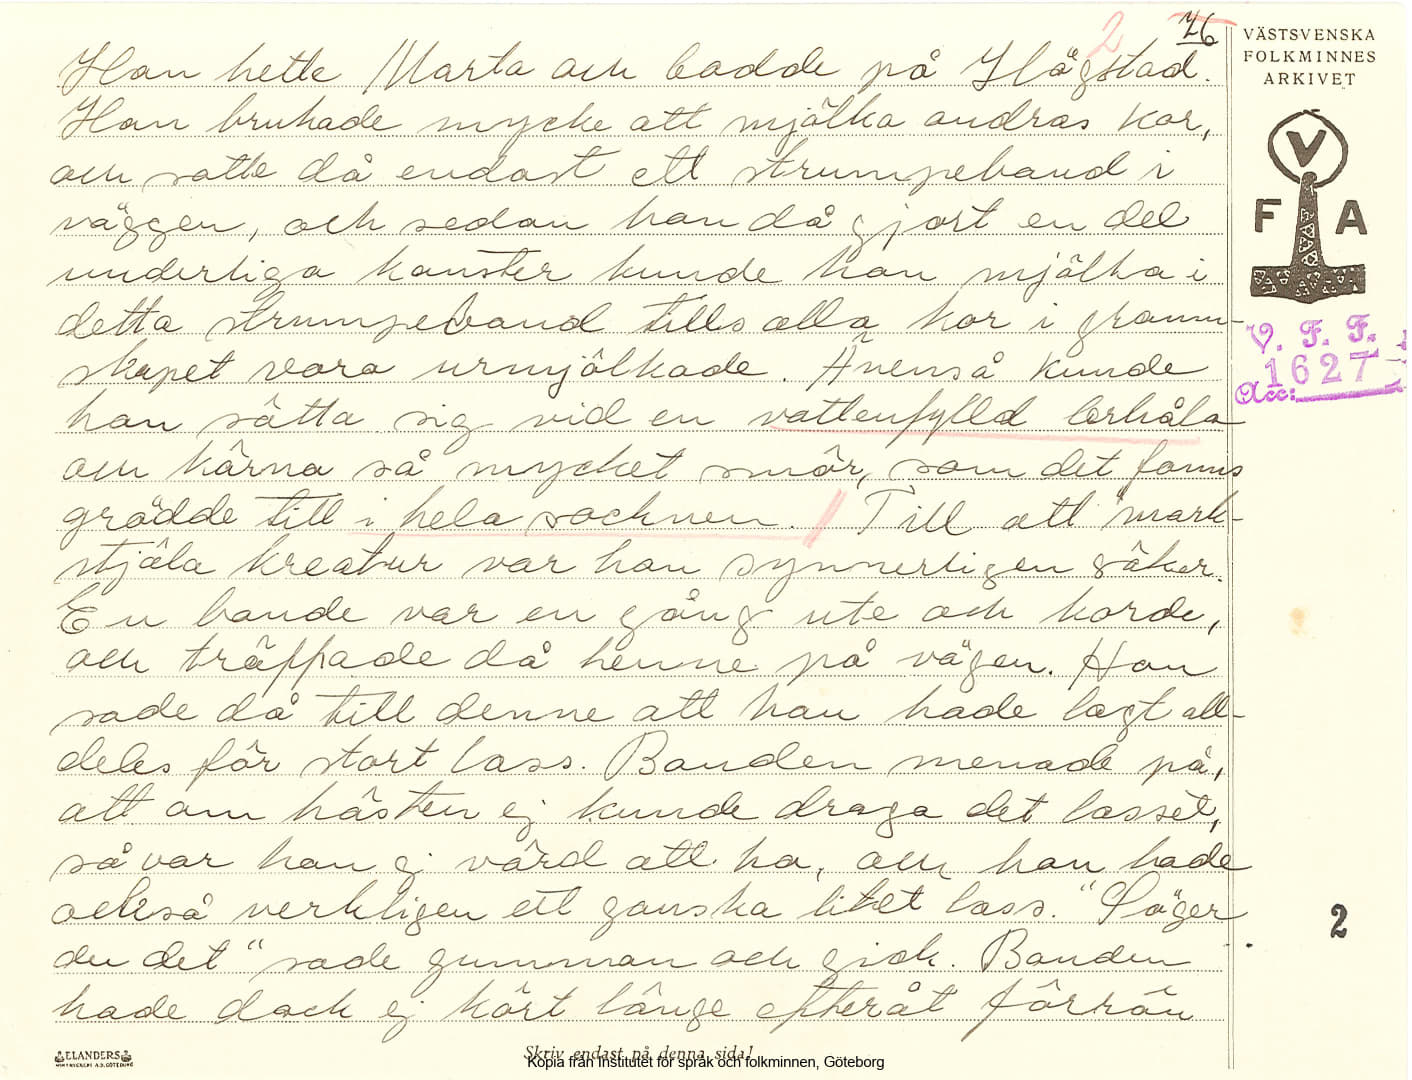 2 76
VÄSTSVENSKA
FOLKMINNES
ARKIVET
V
F A
V. F. F.
1627
Acc:
Hon hette Marta och bodde på Högstad.
Hon brukade mycke att mjölka andras kor,
och satte då endast ett strumpeband i
väggen, och sedan hon då gjort en del
underliga konster kunde hon mjölka i
detta strumpeband tills alla kor i grann-
skapet voro urmjölkade. Ävenså kunde
hon sätta sig vid en vattenfylld lerhåla
och kärna så mycket smör, som det fanns
grädde till i hela socknen. Till att mark-
stjäla kreatur var hon synnerligen säker.
En bonde var en gång ute och körde,
och träffade då henne på vägen. Hon
sade då till denne att han hade lagt all-
deles för stort lass. Bonden menade på,
att om hästen ej kunde draga det lasset,
så var han ej värd att ha, och han hade
också verkligen ett ganska litet lass. "Säger
du det" sade gumman och gick. Bonden
hade dock ej kört länge efteråt förrän
2
ELANDERS
Skriv endast på denna sida!
Kopia från Institutet för språk och folkminnen, Göteborg